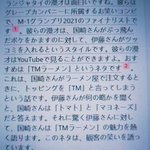 ランジャタイの漫才は面白いですね。彼らは
グレープカンパニーに所属するお笑いコンビ
で、M-1グランプリ2021のファイナリストで
す。彼らの漫才は、国崎さんがぶっ飛ん
だボケをかますのに対して、伊藤さんがツッ
コミを入れるというスタイルです。彼らの漫
才はYouTubeで見ることができます。おすす
めは「TMラーメン」というネタです。これ
は、国崎さんがラーメン屋で注文すると
きに、トッピングを「TM」と言ってしまう
という話です。伊藤さんが何の略かを聞く
と、国崎さんは「トマトとマヨネーズ」
だと答えます。それに驚く伊藤さんに対し
て、国崎さんは「TMラーメン」の魅力を熱
く語ります。このネタは、観客の笑いを誘っ
ています。